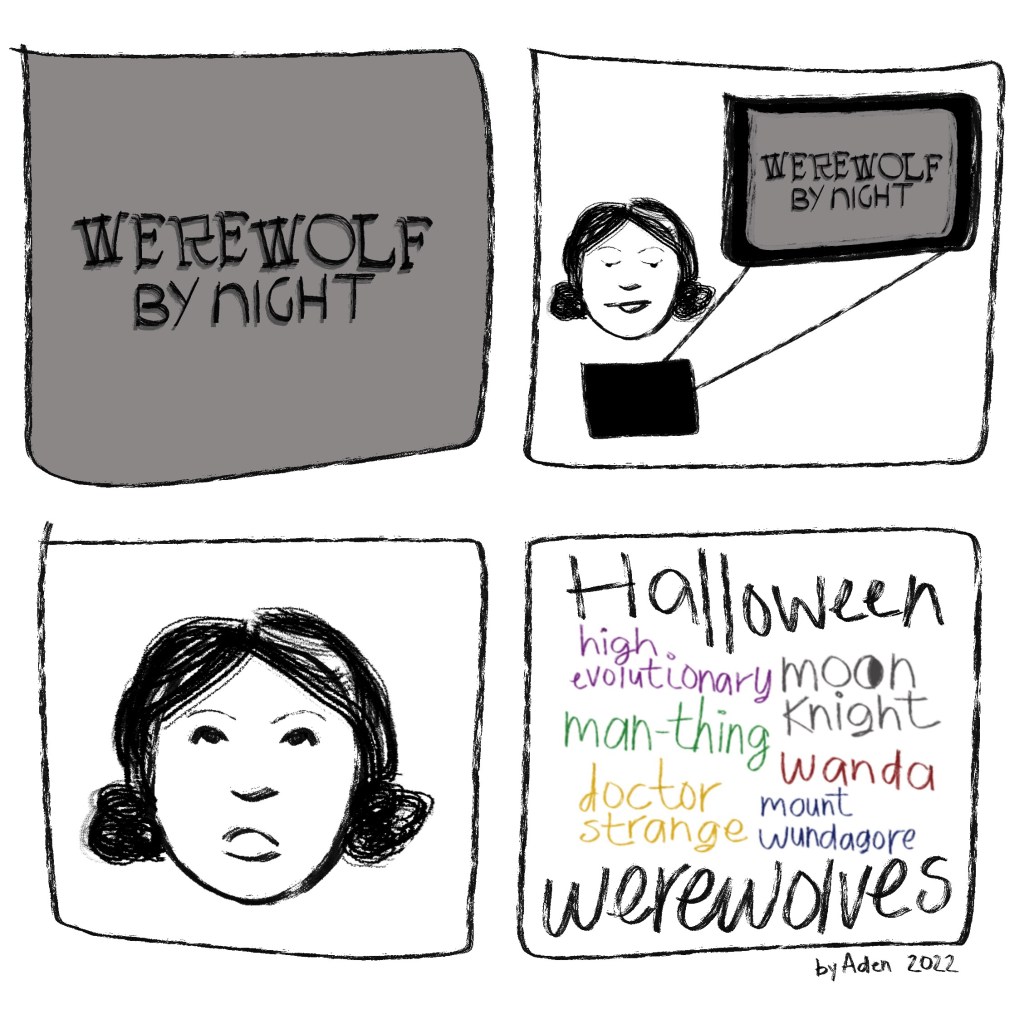 WEREWOLF
BY NIGHT
WEREWOLF
BY NIGHT
Halloween
high
evolutionary
moon
Knight
man-thing
wanda
doctor
strange
mount
wundagore
werewolves
by Aden 2022